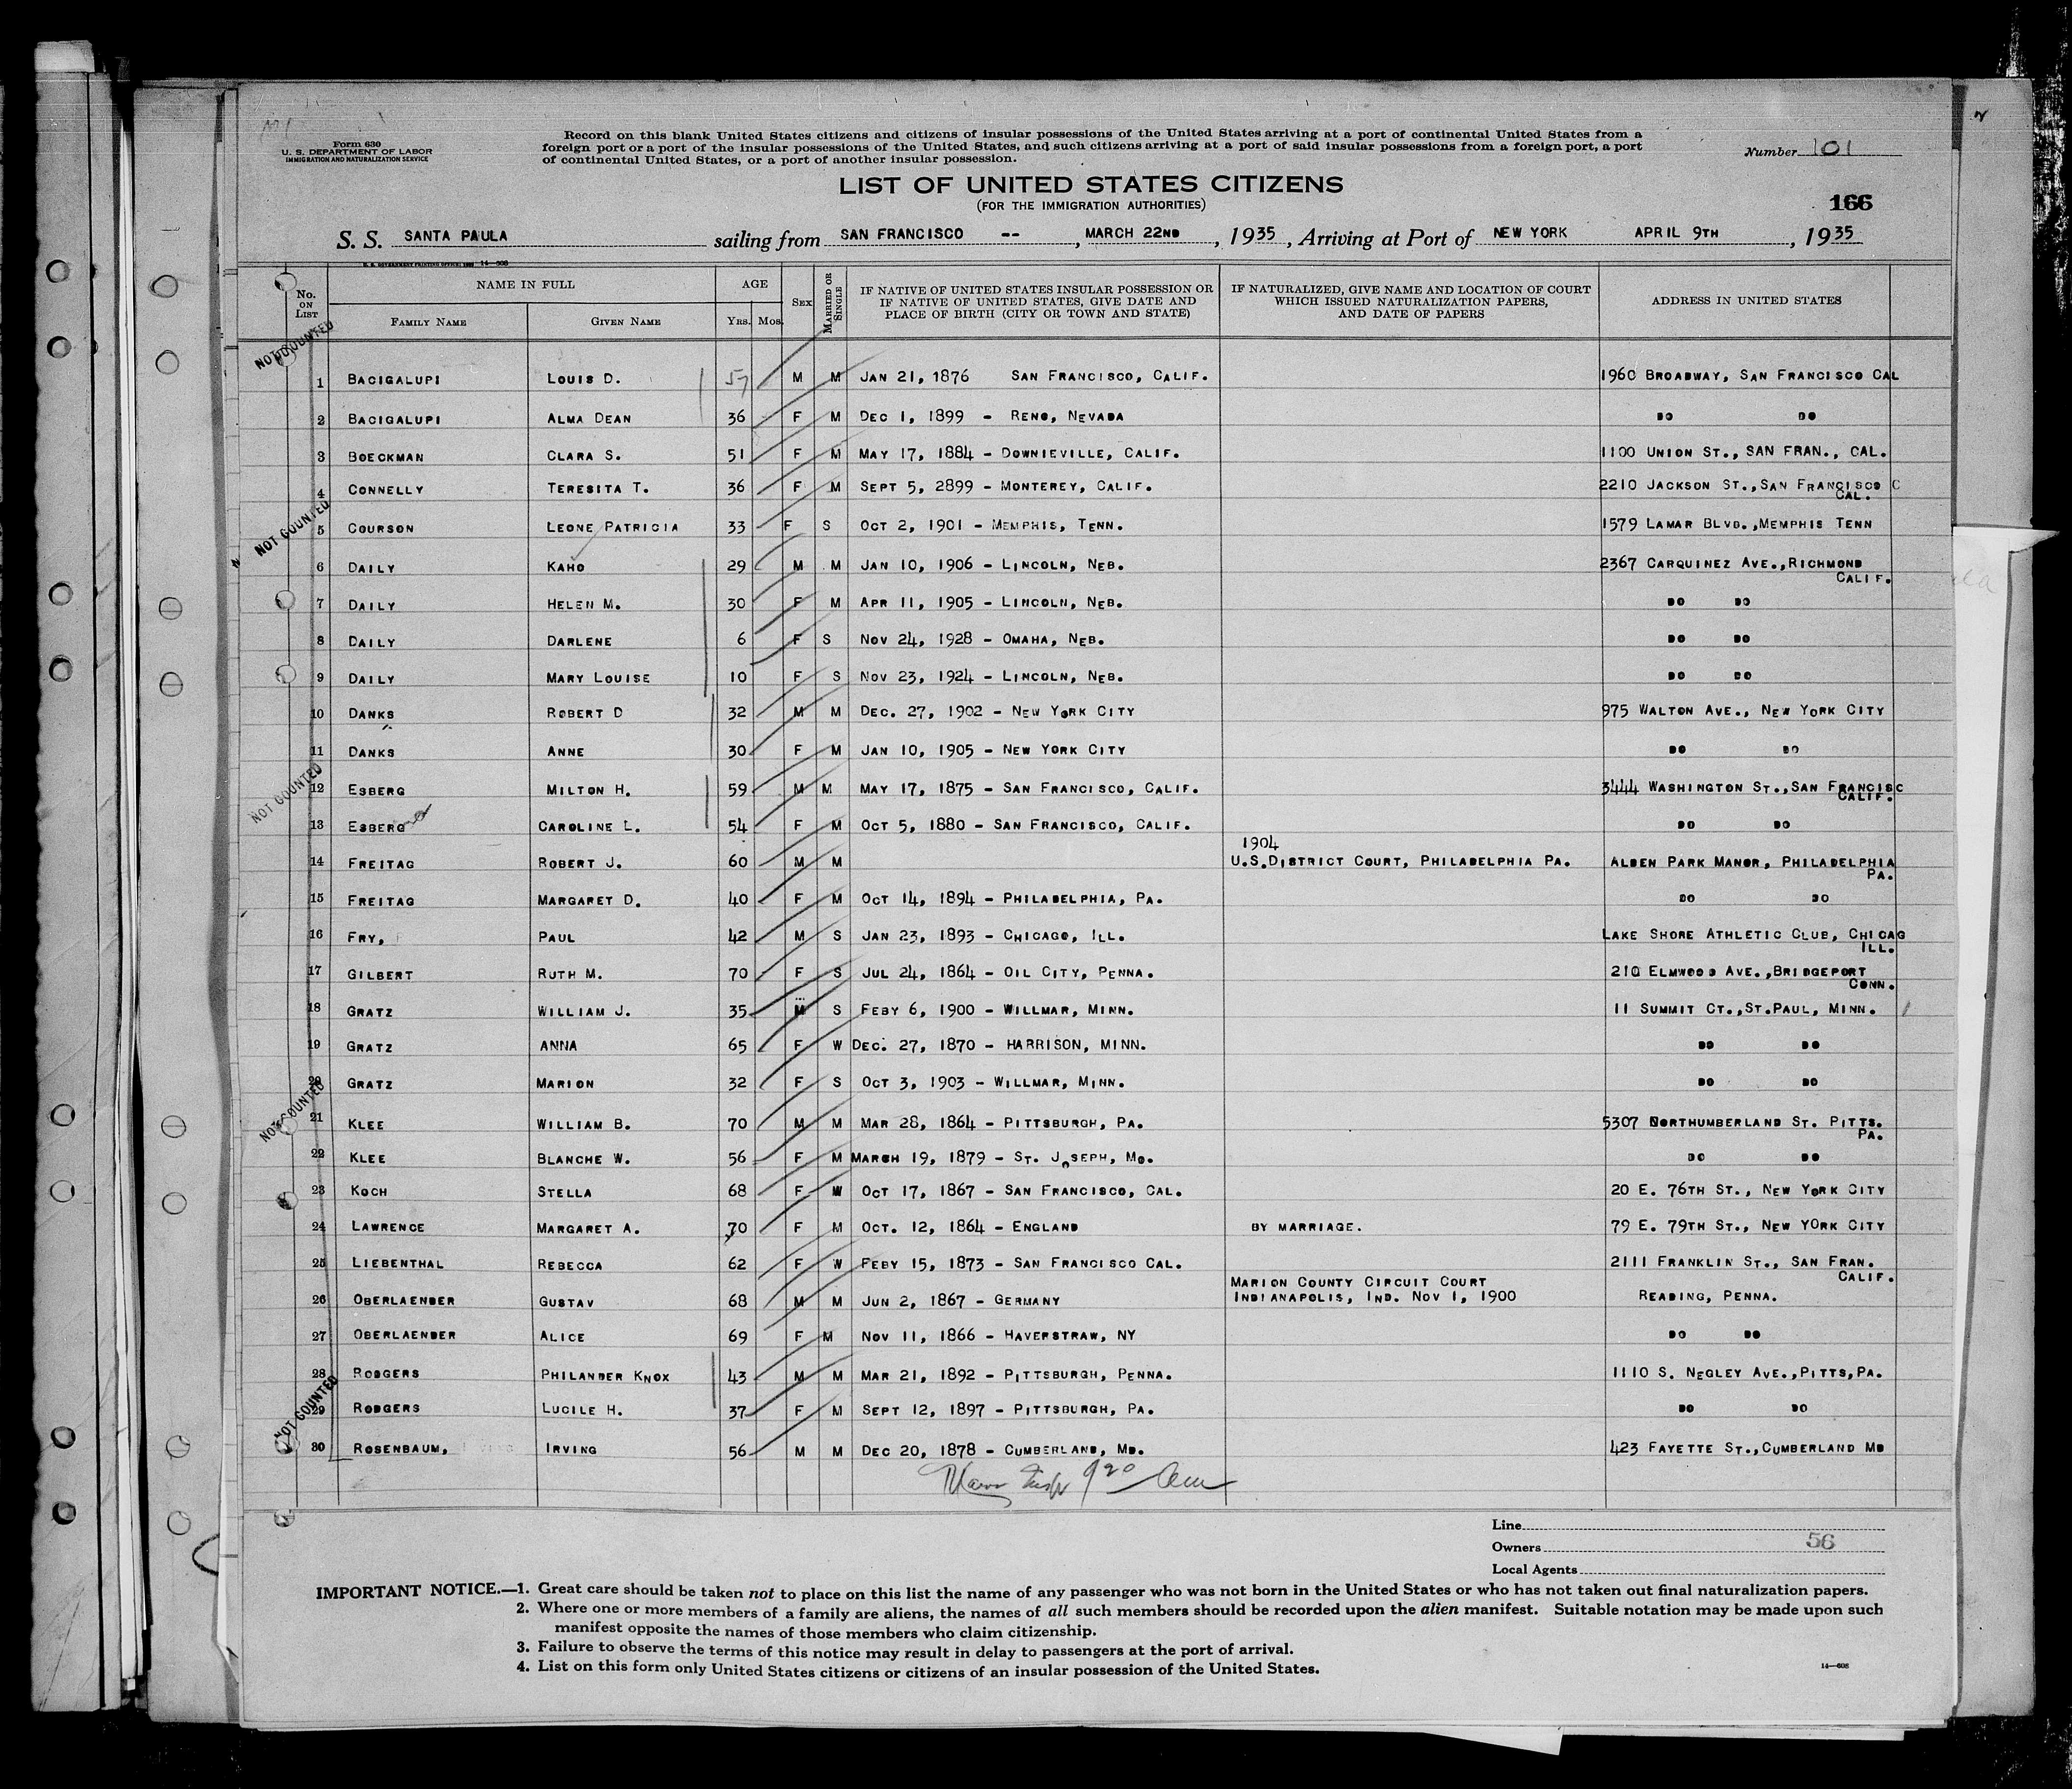 Form 630
U. S. DEPARTMENT OF LABOR
IMMIGRATION AND NATURALIZATION SERVICE
Record on this blank United States citizens and citizens of insular possessions of the United States arriving at a port of continental United States from a
foreign port or a port of the insular possessions of the United States, and such citizens arriving at a port of said insular possessions from a foreign port, a port
of continental United States, or a port of another insular possession.
Number 101
LIST OF UNITED STATES CITIZENS
(FOR THE IMMIGRATION AUTHORITIES)
166
S. S. SANTA PAULA sailing from SAN FRANCISCO -- , MARCH 22ND , 1935 , Arriving at Port of NEW YORK APRIL 9TH , 1935
No. ON LIST NAME IN FULL FAMILY NAME GIVEN NAME AGE YRS. MOS. SEX MARRIED OR SINGLE IF NATIVE OF UNITED STATES INSULAR POSSESSION OR IF NATIVE OF UNITED STATES, GIVE DATE AND PLACE OF BIRTH (CITY OR TOWN AND STATE) IF NATURALIZED, GIVE NAME AND LOCATION OF COURT WHICH ISSUED NATURALIZATION PAPERS, AND DATE OF PAPERS ADDRESS IN UNITED STATES
NOT COUNTED
1 BACIGALUPI LOUIS D. 57 M M JAN 21, 1876 SAN FRANCISCO, CALIF. 1960 BROADWAY, SAN FRANCISCO CAL
2 BACIGALUPI ALMA DEAN 36 F M DEC 1, 1899 - RENO, NEVADA DO DO
3 BOECKMAN CLARA S. 51 F M MAY 17, 1884 - DOWNIEVILLE, CALIF. 1100 UNION ST., SAN FRAN., CAL.
4 CONNELLY TERESITA T. 36 F M SEPT 5, 2899 - MONTEREY, CALIF. 2210 JACKSON ST., SAN FRANCISCO C
CAL.
NOT COUNTED
5 COURSON LEONE PATRICIA 33 F S OCT 2, 1901 - MEMPHIS, TENN. 1579 LAMAR BLVD., MEMPHIS TENN
6 DAILY KAHO 29 M M JAN 10, 1906 - LINCOLN, NEB. 2367 CARQUINEZ AVE., RICHMOND
CALIF.
7 DAILY HELEN M. 30 F M APR 11, 1905 - LINCOLN, NEB. DO DO
8 DAILY DARLENE 6 F S NOV 24, 1928 - OMAHA, NEB. DO DO
9 DAILY MARY LOUISE 10 F S NOV 23, 1924 - LINCOLN, NEB. DO DO
10 DANKS ROBERT D 32 M M DEC. 27, 1902 - NEW YORK CITY 975 WALTON AVE., NEW YORK CITY
11 DANKS ANNE 30 F M JAN 10, 1905 - NEW YORK CITY DO DO
NOT COUNTED
12 ESBERG MILTON H. 59 M M MAY 17, 1875 - SAN FRANCISCO, CALIF. 3444 WASHINGTON ST., SAN FRANCISC
CALIF.
13 ESBERG CAROLINE L. 54 F M OCT 5, 1880 - SAN FRANCISCO, CALIF. DO DO
1904
14 FREITAG ROBERT J. 60 M M U.S. DISTRICT COURT, PHILADELPHIA PA. ALDEN PARK MANOR, PHILADELPHIA
PA.
15 FREITAG MARGARET D. 40 F M OCT 14, 1894 - PHILADELPHIA, PA. DO DO
16 FRY, PAUL 42 M S JAN 23, 1893 - CHICAGO, ILL. LAKE SHORE ATHLETIC CLUB, CHICAG
ILL.
17 GILBERT RUTH M. 70 F S JUL 24, 1864 - OIL CITY, PENNA. 210 ELMWOOD AVE., BRIDGEPORT
CONN.
18 GRATZ WILLIAM J. 35 M S FEBY 6, 1900 - WILLMAR, MINN. 11 SUMMIT CT., ST. PAUL, MINN.
19 GRATZ ANNA 65 F W DEC. 27, 1870 - HARRISON, MINN. DO DO
20 GRATZ MARION 32 F S OCT 3, 1903 - WILLMAR, MINN. DO DO
NOT COUNTED
21 KLEE WILLIAM B. 70 M M MAR 28, 1864 - PITTSBURGH, PA. 5307 NORTHUMBERLAND ST. PITTS.
PA.
22 KLEE BLANCHE W. 56 F M MARCH 19, 1879 - ST. JOSEPH, MO. DO DO
23 KOCH STELLA 68 F W OCT 17, 1867 - SAN FRANCISCO, CAL. 20 E. 76TH ST., NEW YORK CITY
24 LAWRENCE MARGARET A. 70 F M OCT. 12, 1864 - ENGLAND BY MARRIAGE. 79 E. 79TH ST., NEW YORK CITY
25 LIEBENTHAL REBECCA 62 F W FEBY 15, 1873 - SAN FRANCISCO CAL. 2111 FRANKLIN ST., SAN FRAN.
CALIF.
MARION COUNTY CIRCUIT COURT
26 OBERLAENDER GUSTAV 68 M M JUN 2, 1867 - GERMANY INDIANAPOLIS, IND. NOV 1, 1900 READING, PENNA.
27 OBERLAENDER ALICE 69 F M NOV 11, 1866 - HAVERSTRAW, NY DO DO
28 RODGERS PHILANDER KNOX 43 M M MAR 21, 1892 - PITTSBURGH, PENNA. 1110 S. NEGLEY AVE., PITTS, PA.
NOT COUNTED
29 RODGERS LUCILE H. 37 F M SEPT 12, 1897 - PITTSBURGH, PA. DO DO
30 ROSENBAUM, IRVING 56 M M DEC 20, 1878 - CUMBERLAND, MD. 423 FAYETTE ST., CUMBERLAND MD
Line
56
Owners
Local Agents
IMPORTANT NOTICE.—1. Great care should be taken not to place on this list the name of any passenger who was not born in the United States or who has not taken out final naturalization papers.
2. Where one or more members of a family are aliens, the names of all such members should be recorded upon the alien manifest. Suitable notation may be made upon such
manifest opposite the names of those members who claim citizenship.
3. Failure to observe the terms of this notice may result in delay to passengers at the port of arrival.
4. List on this form only United States citizens or citizens of an insular possession of the United States.